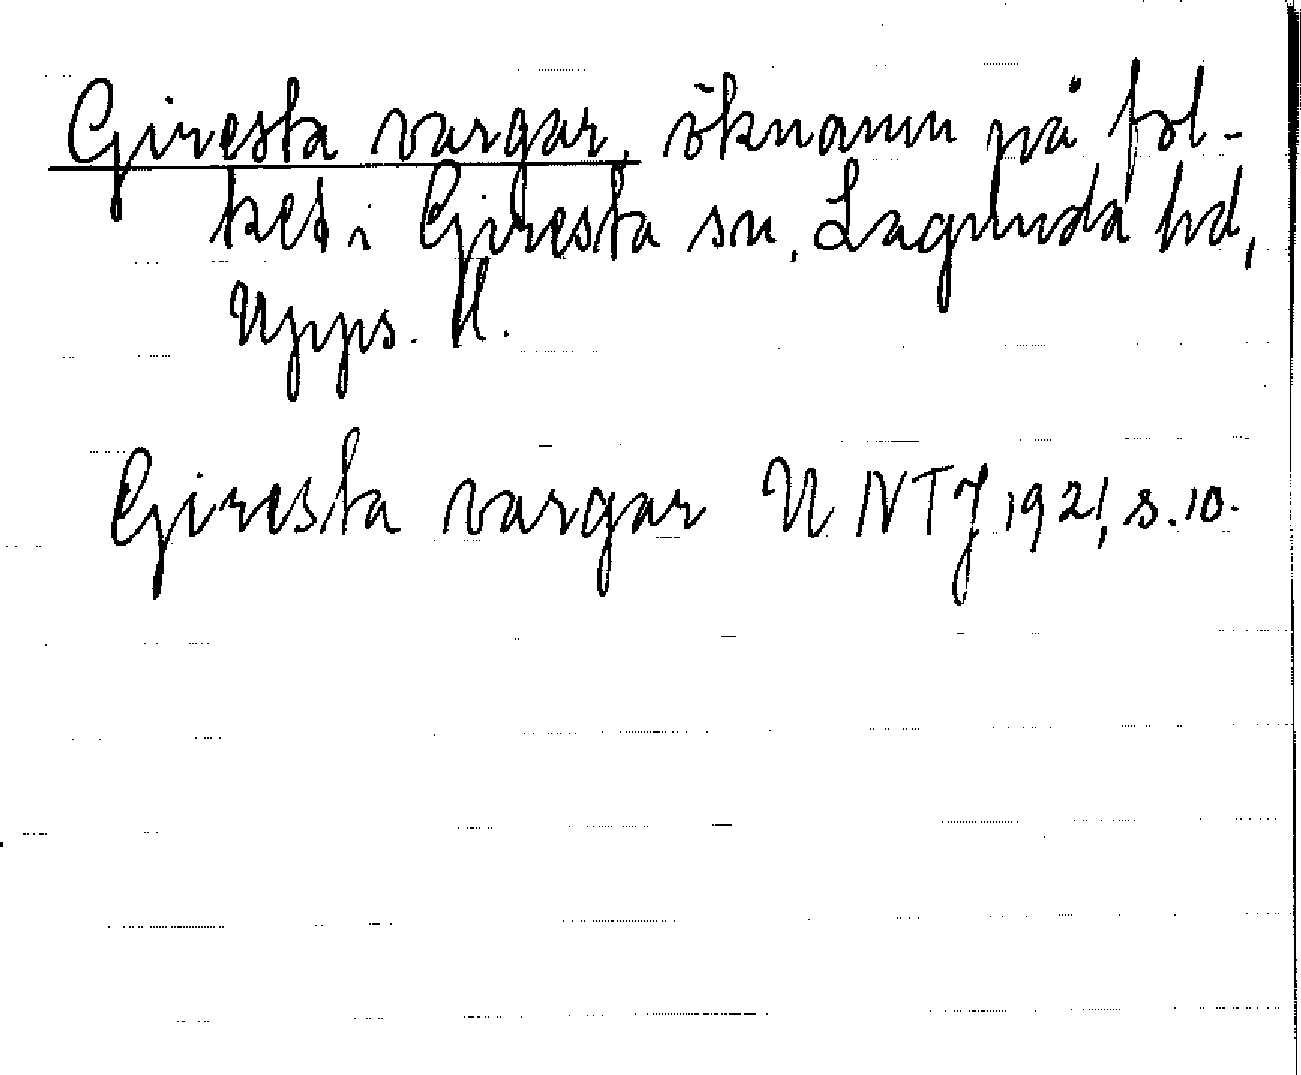 Giresta vargar, öknamn på fol-
ket i Giresta sn, Lagunda hd,
Upps. l.
Giresta vargar UNTJ 1921, s. 10.